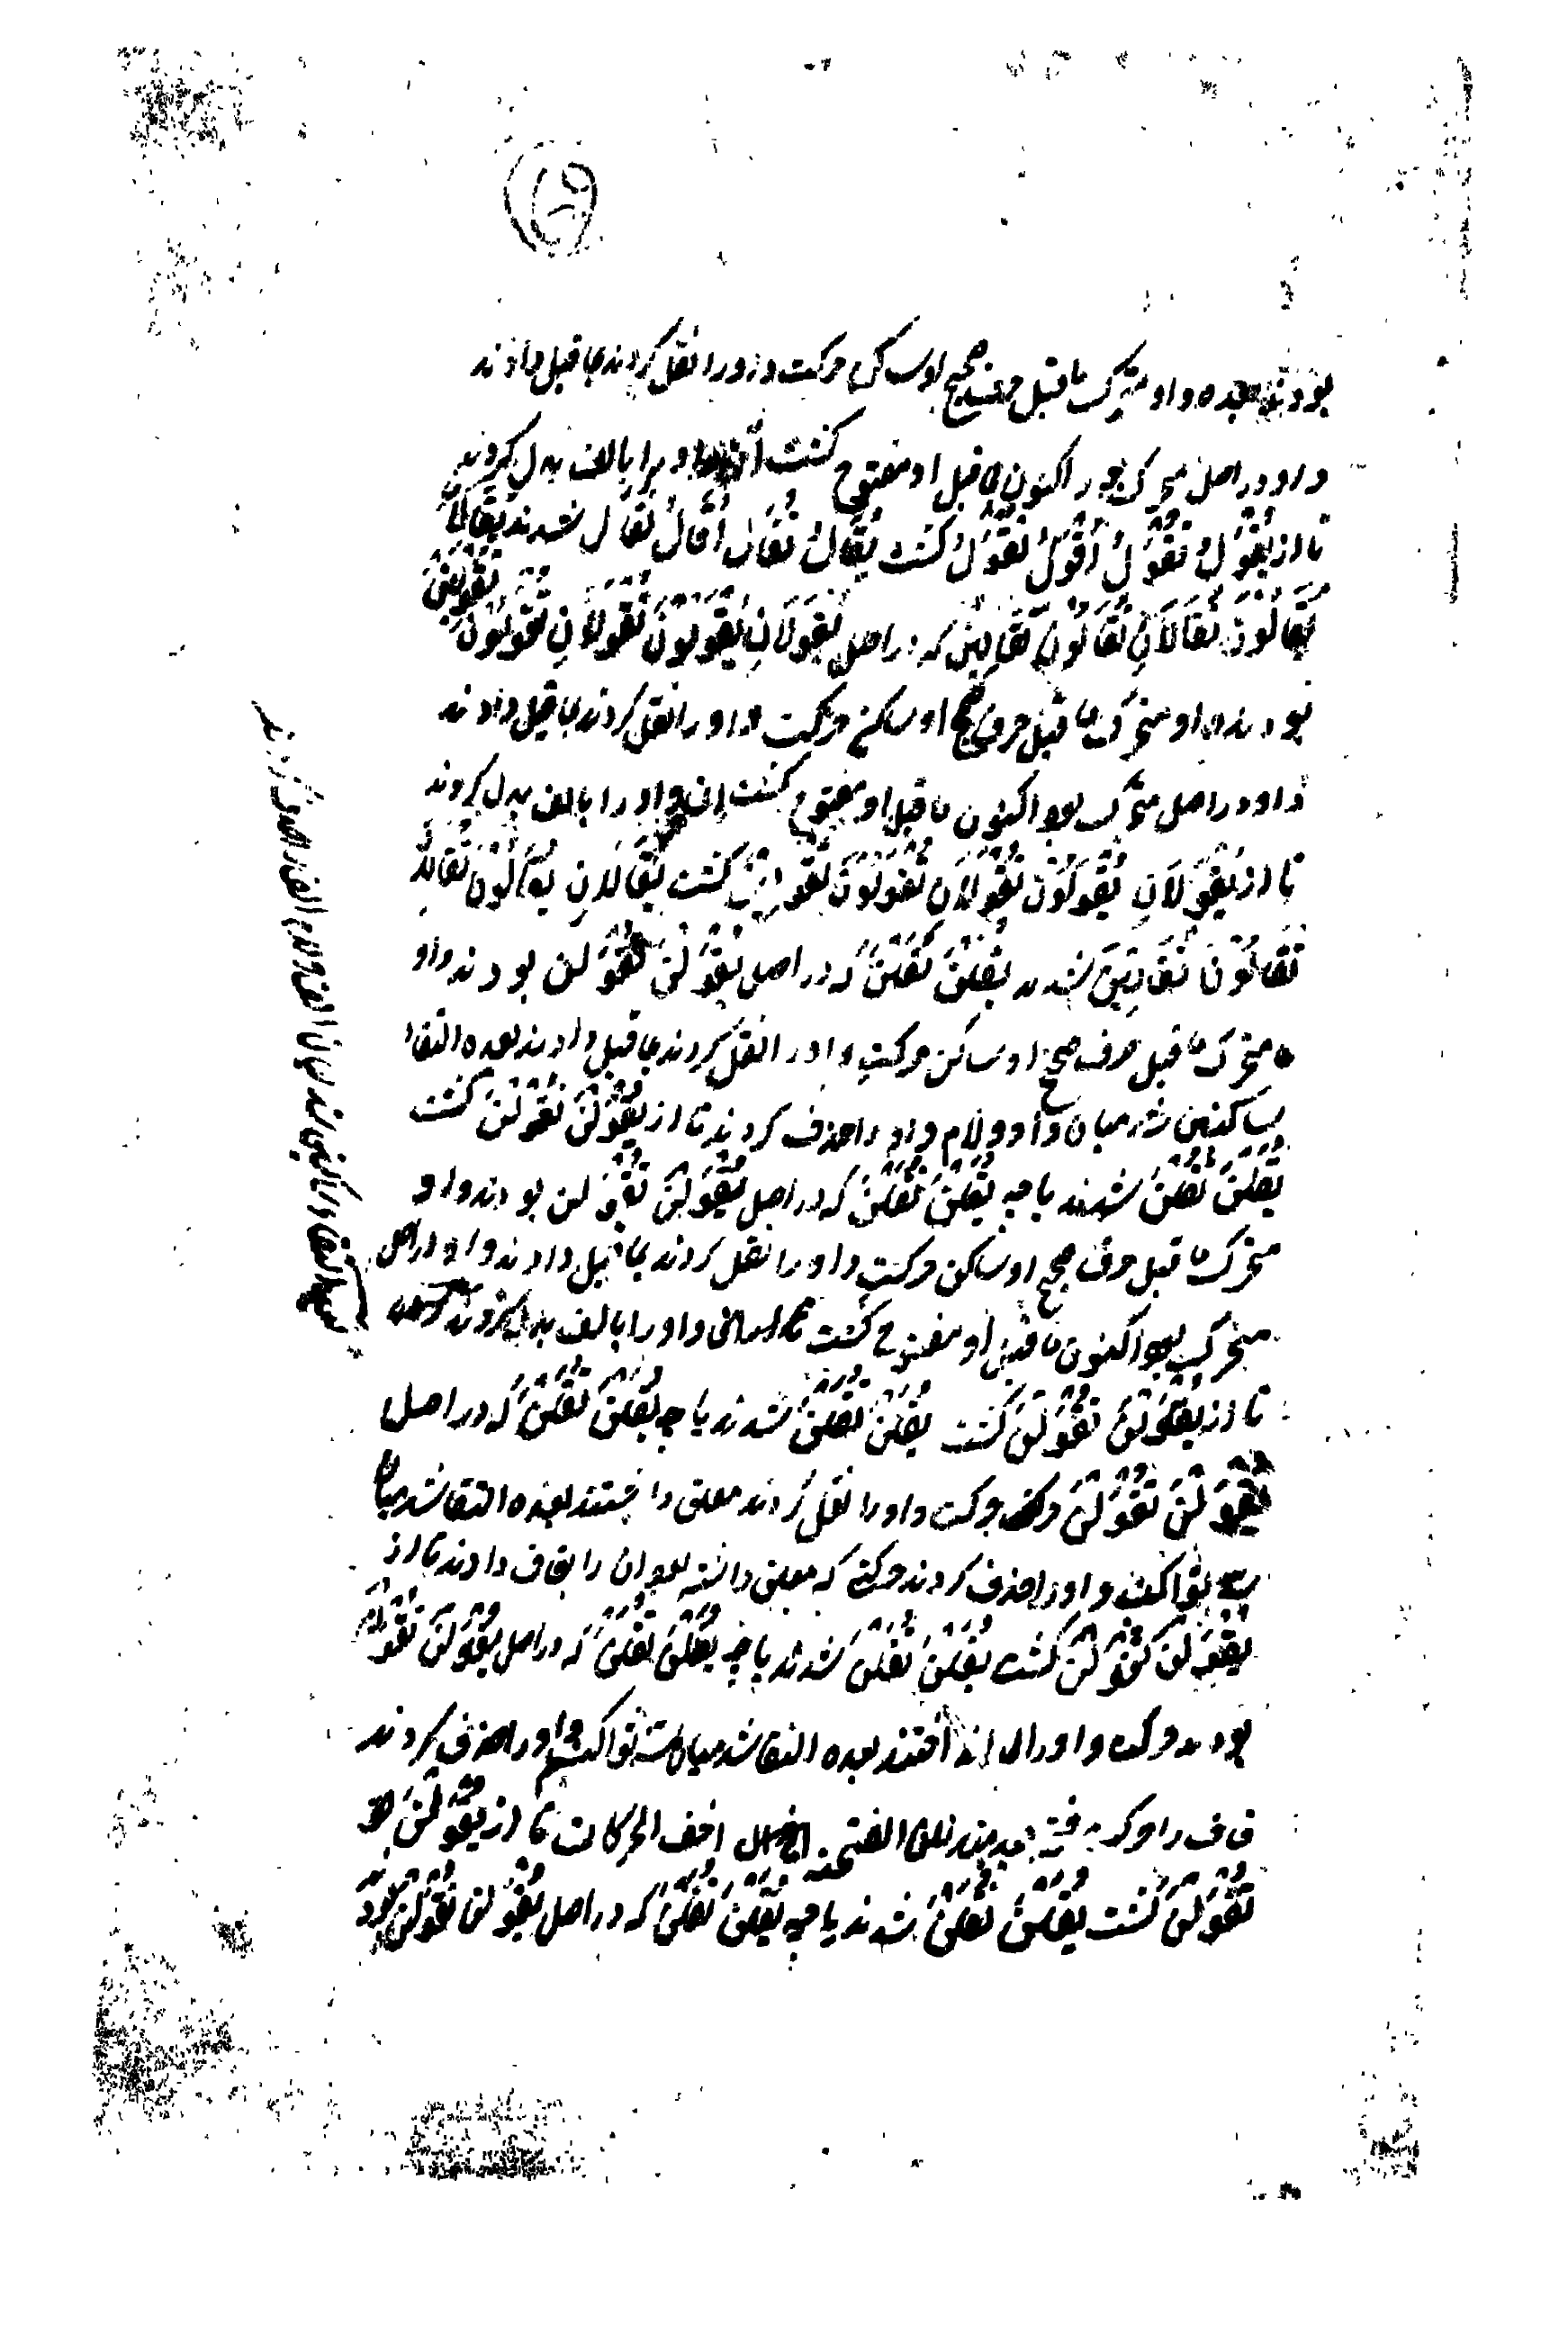 بودند بعده واو متحرک ماقبل حرف صحیح اوساکن حرکت واو را نقل کردند بماقبل دادند
واو دراصل متحرک بود اکنون ماقبل او مفتوح گشت آن واو را بالف بدل کردند
تا از یُقْوَلُ تُقْوَلُ اُقْوَلُ نُقْوَلُ گشت یُقَالُ تُقَالُ اُقَالُ نُقَالُ شدند یُقَالَانِ
یُقَالُوْنَ تُقَالَانِ تُقَالُوْنَ تُقَالِیْنَ که دراصل یُقْوَلَانِ یُقْوَلُوْنَ تُقْوَلَانِ تُقْوَلُوْنَ تُقْوَلِیْنَ
بودند واو متحرک ماقبل حرف صحیح اوساکن حرکت واو را نقل کردند بماقبل دادند
واو دراصل متحرک بود اکنون ماقبل او مفتوح گشت آن واو را بالف بدل کردند
تا از یُقْوَلَانِ یُقْوَلُوْنَ تُقْوَلَانِ تُقْوَلُوْنَ تُقْوَلِیْنَ گشت یُقَالَانِ یُقَالُوْنَ تُقَالَانِ
تُقَالُوْنَ تُقَالِیْنَ شدند یُقَلْنَ تُقَلْنَ که دراصل یُقْوَلْنَ تُقْوَلْنَ بودند واو
متحرک ماقبل حرف صحیح اوساکن حرکت واو را نقل کردند بماقبل دادند بعده التقا
ساکنین شد میان واو ولام واو را حذف کردند تا از یُقْوَلْنَ تُقْوَلْنَ گشت
یُقَلْنَ تُقَلْنَ شدند یاچه یُقَلْنَ تُقَلْنَ که دراصل یُقْوَلْنَ تُقْوَلْنَ بودند واو
متحرک ماقبل حرف صحیح اوساکن حرکت واو را نقل کردند بماقبل دادند واو دراصل
متحرک بود اکنون ماقبل او مفتوح گشت واو را بالف بدل کردند
التقاء ساکنین شد میان الف ولام الف را حذف کردند
تا از یُقْوَلْنَ تُقْوَلْنَ گشت یُقَلْنَ تُقَلْنَ شدند یاچه یُقَلْنَ تُقَلْنَ که دراصل
یُقْوَلْنَ تُقْوَلْنَ حرکت واو را نقل کردند معلق داشتند بعده التقا شد میان
واو را حذف کردند حرکتی که معلق داشته بود آن را بقاف دادند تا از
یُقْوَلْنَ تُقْوَلْنَ گشت یُقَلْنَ تُقَلْنَ شدند یاچه یُقَلْنَ تُقَلْنَ که دراصل یُقْوَلْنَ تُقْوَلْنَ
بودند حرکت واو را انداختند بعده التقا شد میان واو را حذف کردند
قاف را حرکت فتحه دادند لان الفتحة اخف الحرکات تا از یُقْوَلْنَ
تُقْوَلْنَ گشت یُقَلْنَ تُقَلْنَ شدند یاچه یُقَلْنَ تُقَلْنَ که دراصل یُقْوَلْنَ تُقْوَلْنَ بود